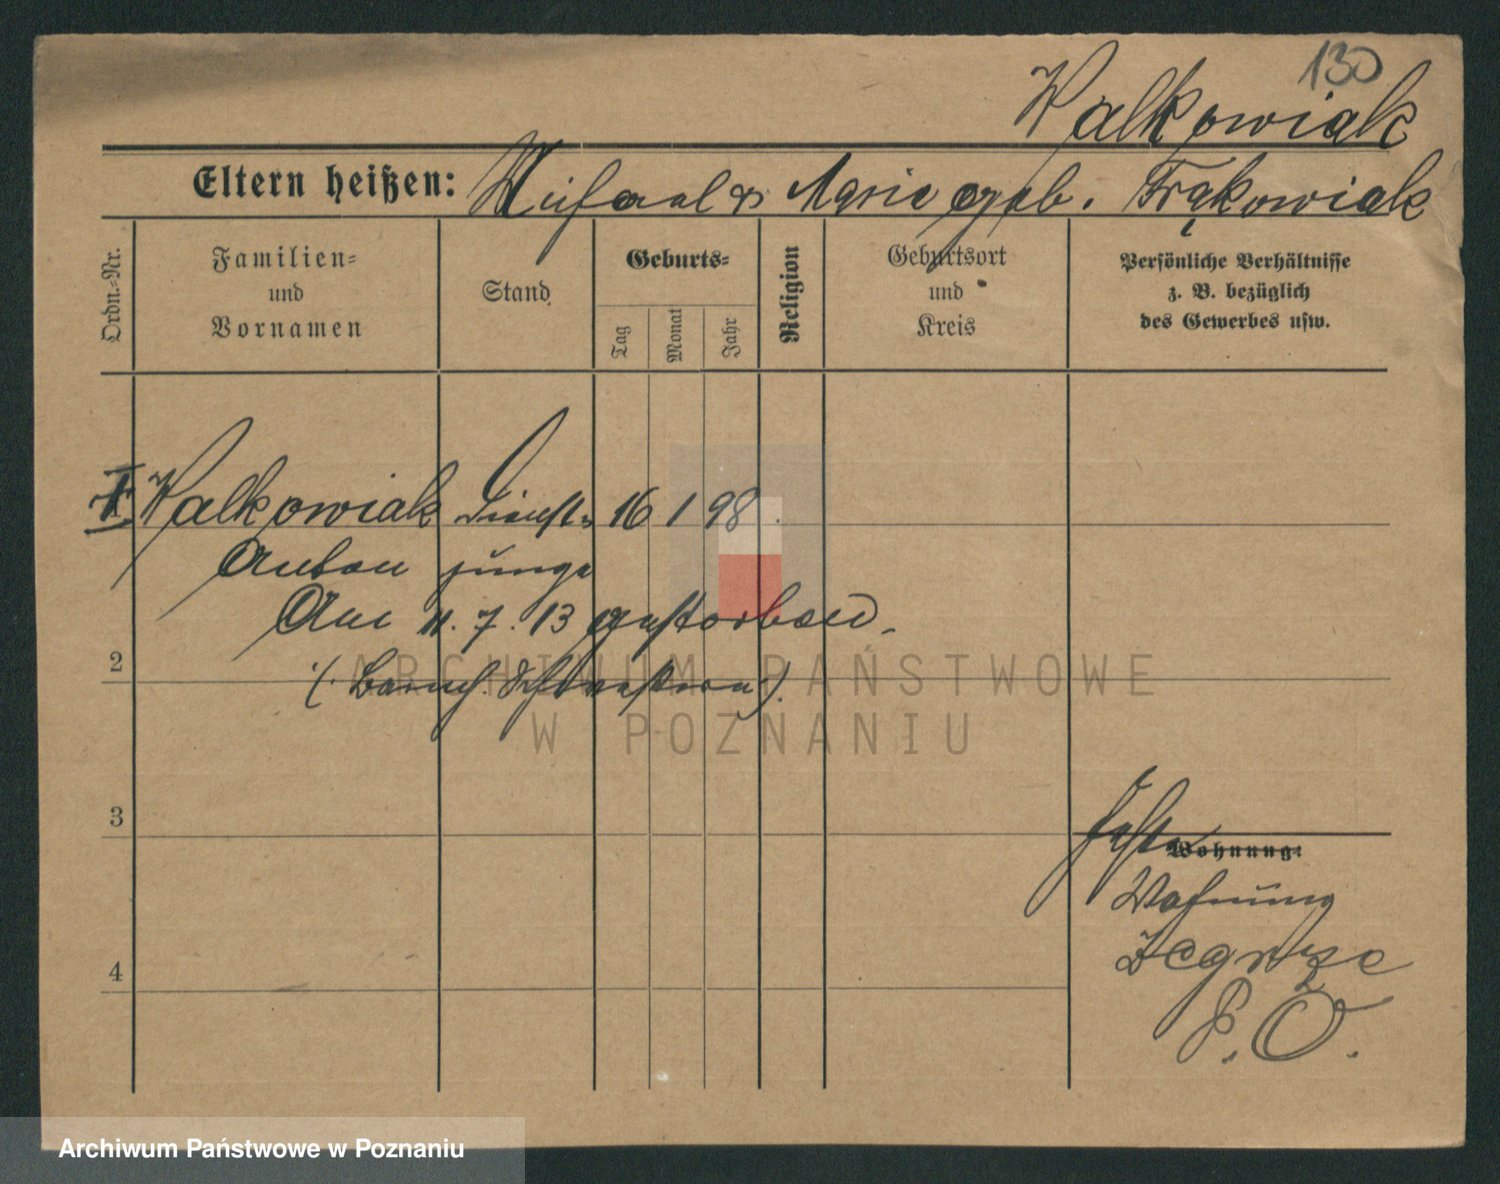 130
Walkowiak
Eltern heißen: Michael & Marie geb. Frąkowiak
Ordn.-Nr.
Familien-
und
Vornamen
Stand
Geburts-
Tag
Monat
Jahr
Religion
Geburtsort
und
Kreis
Persönliche Verhältnisse
z. B. bezüglich
des Gewerbes usw.
I Walkowiak Dienst- 16 1 98.
Anton junge
Am 11. 7. 13 gestorben.
2
(Barmh. Schwestern).
3
Wohnung:
Wohnung
Zegrze
4
P. O.
ARCHIWUM PAŃSTWOWE
W POZNANIU
Archiwum Państwowe w Poznaniu